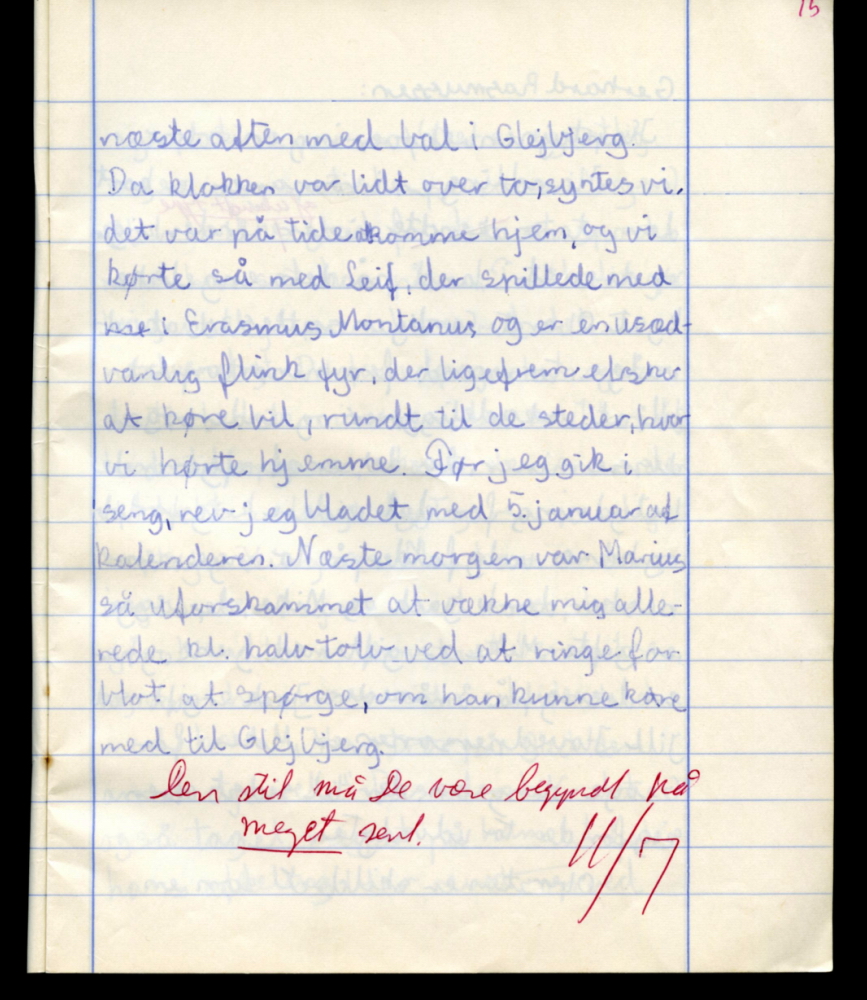 15
næste aften med bal i Glejbjerg.
Da klokken var lidt over to, syntes vi,
det var på tide at komme hjem, og vi
kørte så med Leif, der spillede med
i Erasmus Montanus og er en usæd-
vanlig flink fyr, der ligefrem elsker
at køre bil, rundt til de steder, hvor
vi hørte hjemme. Før jeg gik i
seng, rev jeg bladet med 5. januar af
kalenderen. Næste morgen var Marius
så uforskammet at vække mig alle-
rede kl. halv tolv ved at ringe for
blot at spørge, om han kunne køre
med til Glejbjerg.
Den stil må De være begyndt på
meget sent.